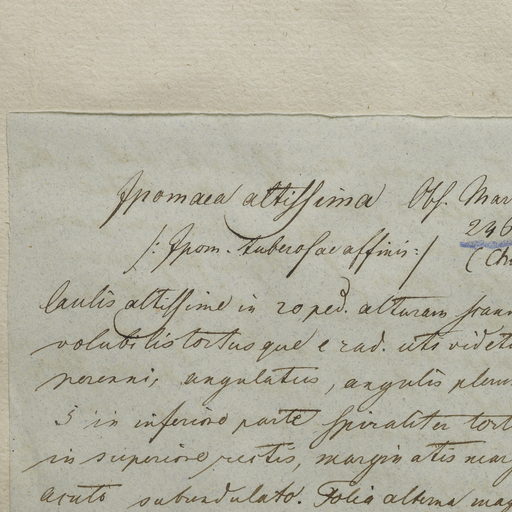 Ipomaea altissima Obs. Mar
/: Ipom. tuberosae affinis :/ 246
(Ch
Caulis altissime in 20 ped. altturam scann
volubilis tortusque e rad. uti videt
perenni, angulatus, angulis plerum
5 in inferiore parte spiraliter tort
in superiore rectis, marginatis marg
acuto subundulato. Folia alterna mag